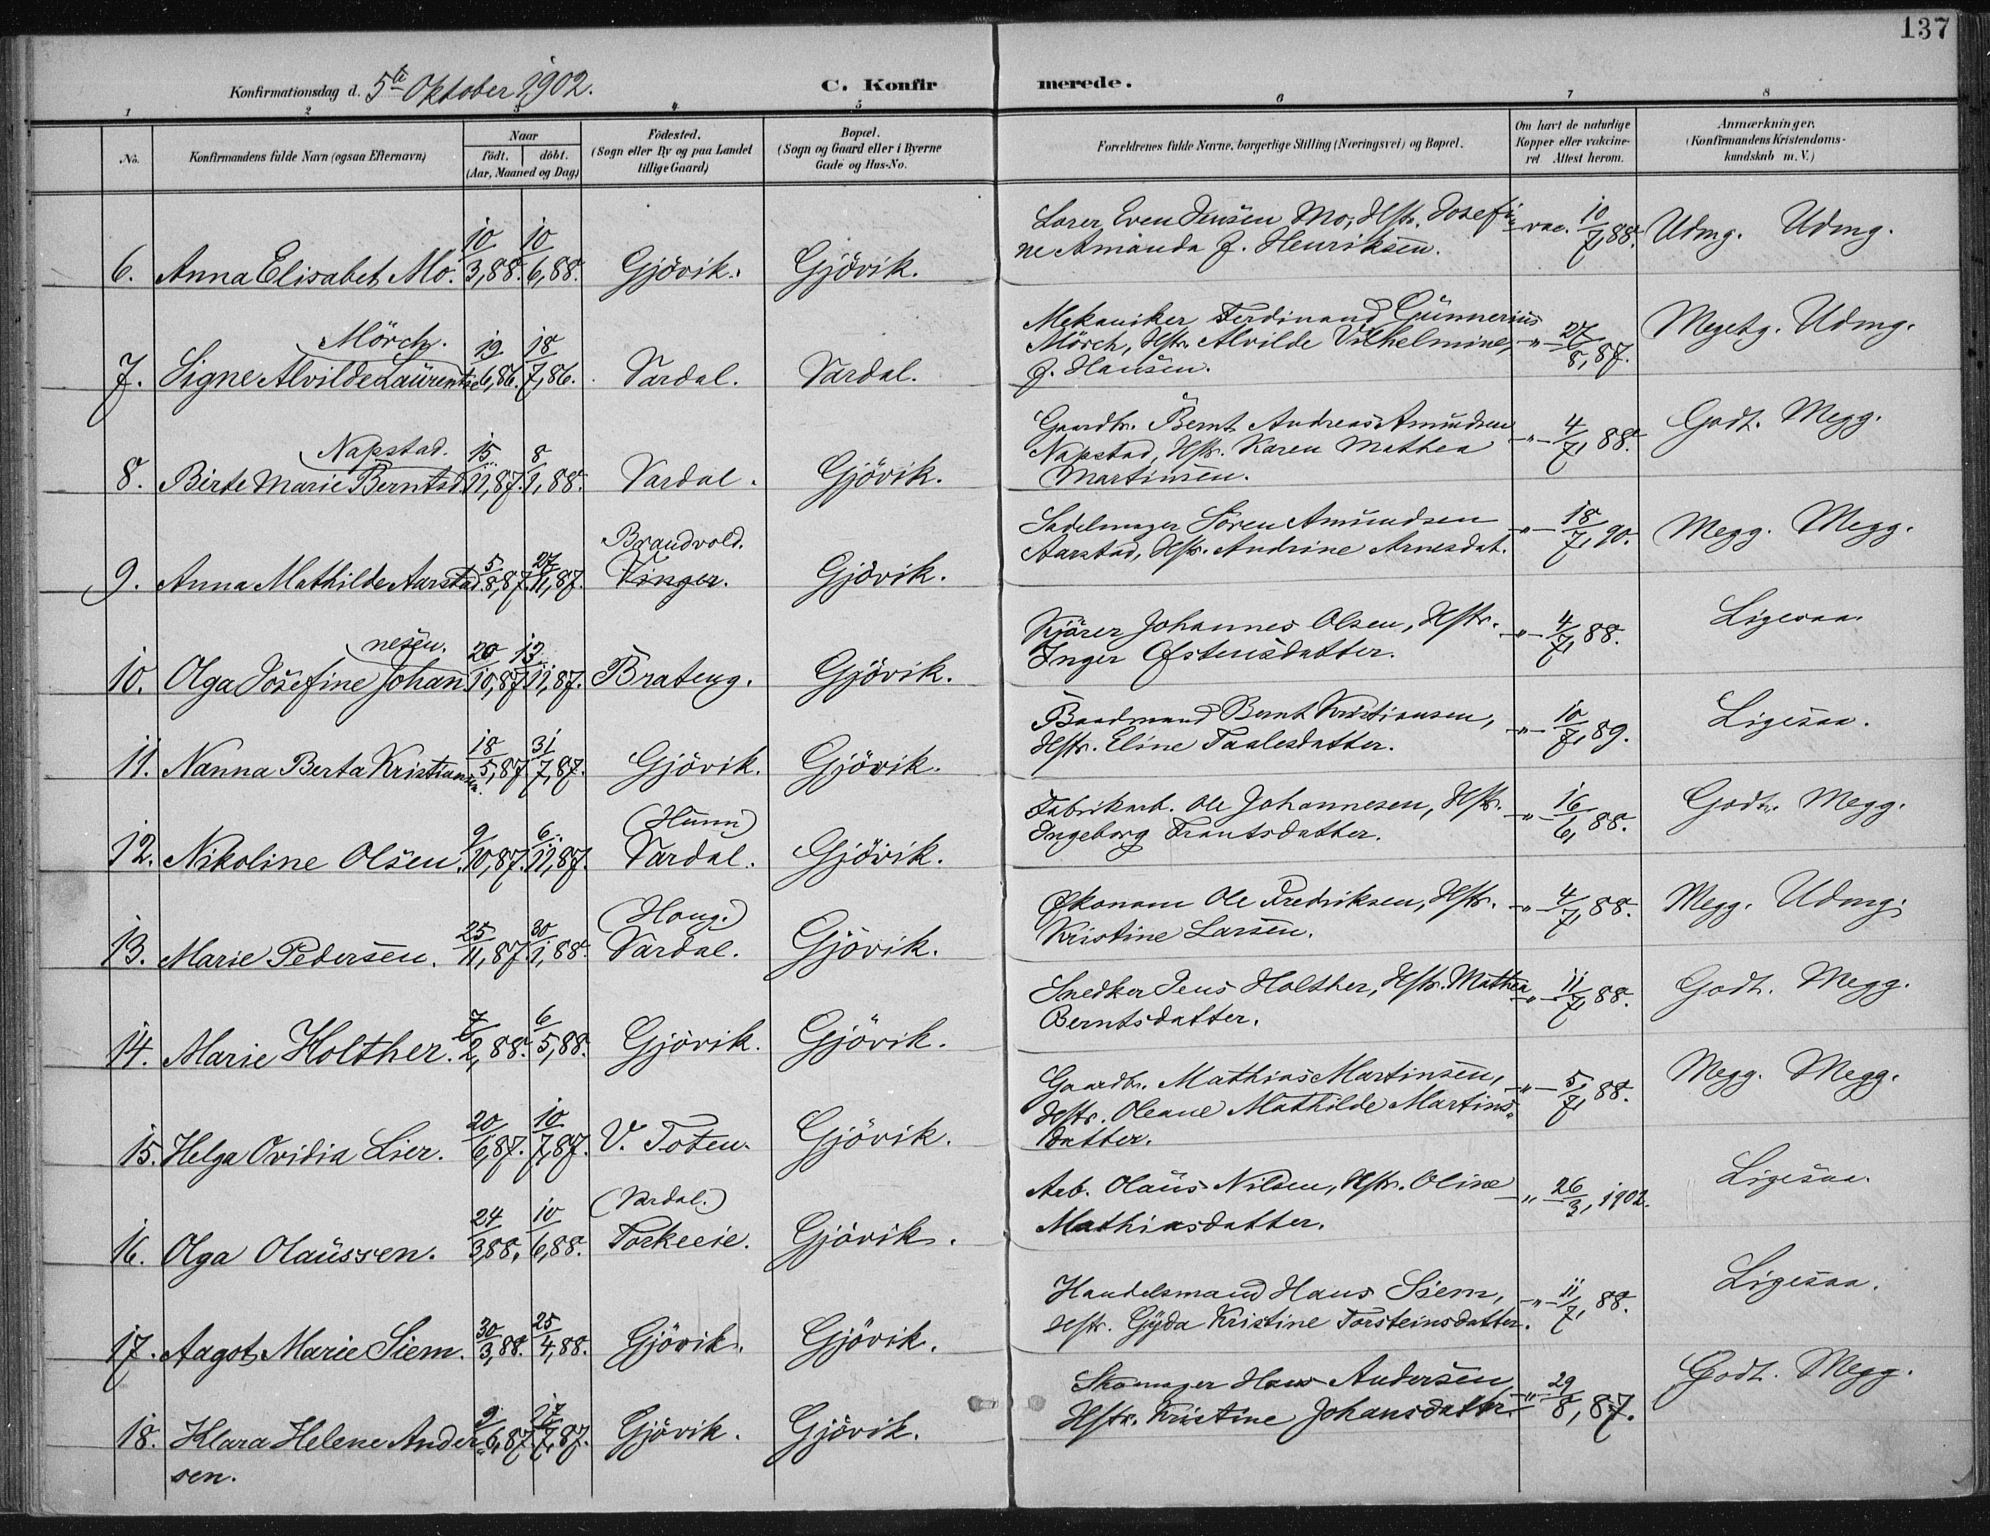 137
Konfirmationsdag d. 5te Oktober 1902.
C. Konfirmerede.
1 2 3 4 5 6 7 8
No.
Konfirmandens fulde Navn (ogsaa Efternavn)
Naar
födt. döbt.
(Aar, Maaned og Dag)
Födested.
(Sogn eller By og paa Landet
tillige Gaard)
Bopæl.
(Sogn og Gaard eller i Byerne
Gade og Hus-No.
Forældrenes fulde Navne, borgerlige Stilling (Næringsvei) og Bopæl.
Om havt de naturlige
Kopper eller vakcine-
ret Attest herom.
Anmærkninger,
(Konfirmandens Kristendoms-
kundskab m. V.)
6. Anna Elisabet Mo. 10/3, 88. 10/6, 88. Gjövik. Gjövik.
Lærer Even Jensen Mo, Hstr. Josefi-
ne Amanda f. Henriksen.
vac. 10/7, 88. Udmg. Udmg.
Mörch.
7. Signe Alvilde Laurentse 19/6, 86. 18/7, 86. Vardal. Vardal.
Mekaniker Ferdinand Gunnerius
Mörch, Hstr. Alvilde Vilhelmine,
f. Hansen.
-"- 27/8, 87. Megetg. Udmg.
Napstad.
8. Birte Marie Berntsd. 15/11, 87. 8/1, 88. Vardal. Gjövik.
Gaardbr. Bernt Andreas Amundsen
Napstad, Hstr. Karen Mathea
Martinsen.
-"- 4/7, 88. Godt. Megg.
Brandvold.
9. Anna Mathilde Aarstad. 5/8, 87. 27/11, 87. Vinger. Gjövik.
Sadelmager Sören Amundsen
Aarstad, Hstr. Andrine Arnesdat.
-"- 18/7, 90. Megg. Megg.
nesen.
10. Olga Josefine Johan 20/10, 87. 13/11, 87. Brateng. Gjövik.
Kjörer Johannes Olsen, Hstr.
Inger Østensdatter.
-"- 4/7, 88. Ligesaa.
11. Nanna Berta Kristiansen. 18/5, 87. 31/7, 87. Gjövik. Gjövik.
Baadmand Bernt Kristiansen,
Hstr. Eline Paalesdatter.
-"- 10/7, 89. Ligesaa.
(Hunn)
12. Nikoline Olsen. 9/10, 87. 6/11, 87. Vardal. Gjövik.
Fabrikarb. Ole Johannesen, Hstr.
Ingeborg Frantsdatter.
-"- 16/6, 88. Godt. Megg.
(Houg.)
13. Marie Pedersen. 25/11, 87. 30/1, 88. Vardal. Gjövik.
Økonom Ole Fredriksen, Hstr.
Kristine Larsen.
-"- 4/7, 88. Megg. Udmg.
14. Marie Holther. 7/2, 88. 6/5, 88. Gjövik. Gjövik.
Snedker Jens Holther, Hstr. Mathea
Berntsdatter.
-"- 11/7, 88. Godt. Megg.
15. Helga Ovidia Lier. 20/6, 87. 10/7, 87. V. Toten. Gjövik.
Gaardbr. Mathias Martinsen,
Hstr. Oleane Mathilde Martins-
datter.
-"- 5/7, 88. Megg. Megg.
(Vardal.)
16. Olga Olaussen. 24/3, 88. 10/6, 88. Gjövik.
Arb. Olaus Nilsen, Hstr. Oline
Mathiasdatter.
-"- 26/3, 1902. Ligesaa.
17. Aagot Marie Siem. 30/3, 88. 25/4, 88. Gjövik. Gjövik.
Handelsmand Hans Siem,
Hstr. Gyda Kristine Torsteinsdatter.
-"- 11/7, 88. Ligesaa.
18. Klara Helene Ander- 9/6, 87. 17/7, 87. Gjövik. Gjövik.
sen.
Skomager Hans Andersen
Hstr. Kristine Johansdatter.
-"- 29/8, 87. Godt. Megg.